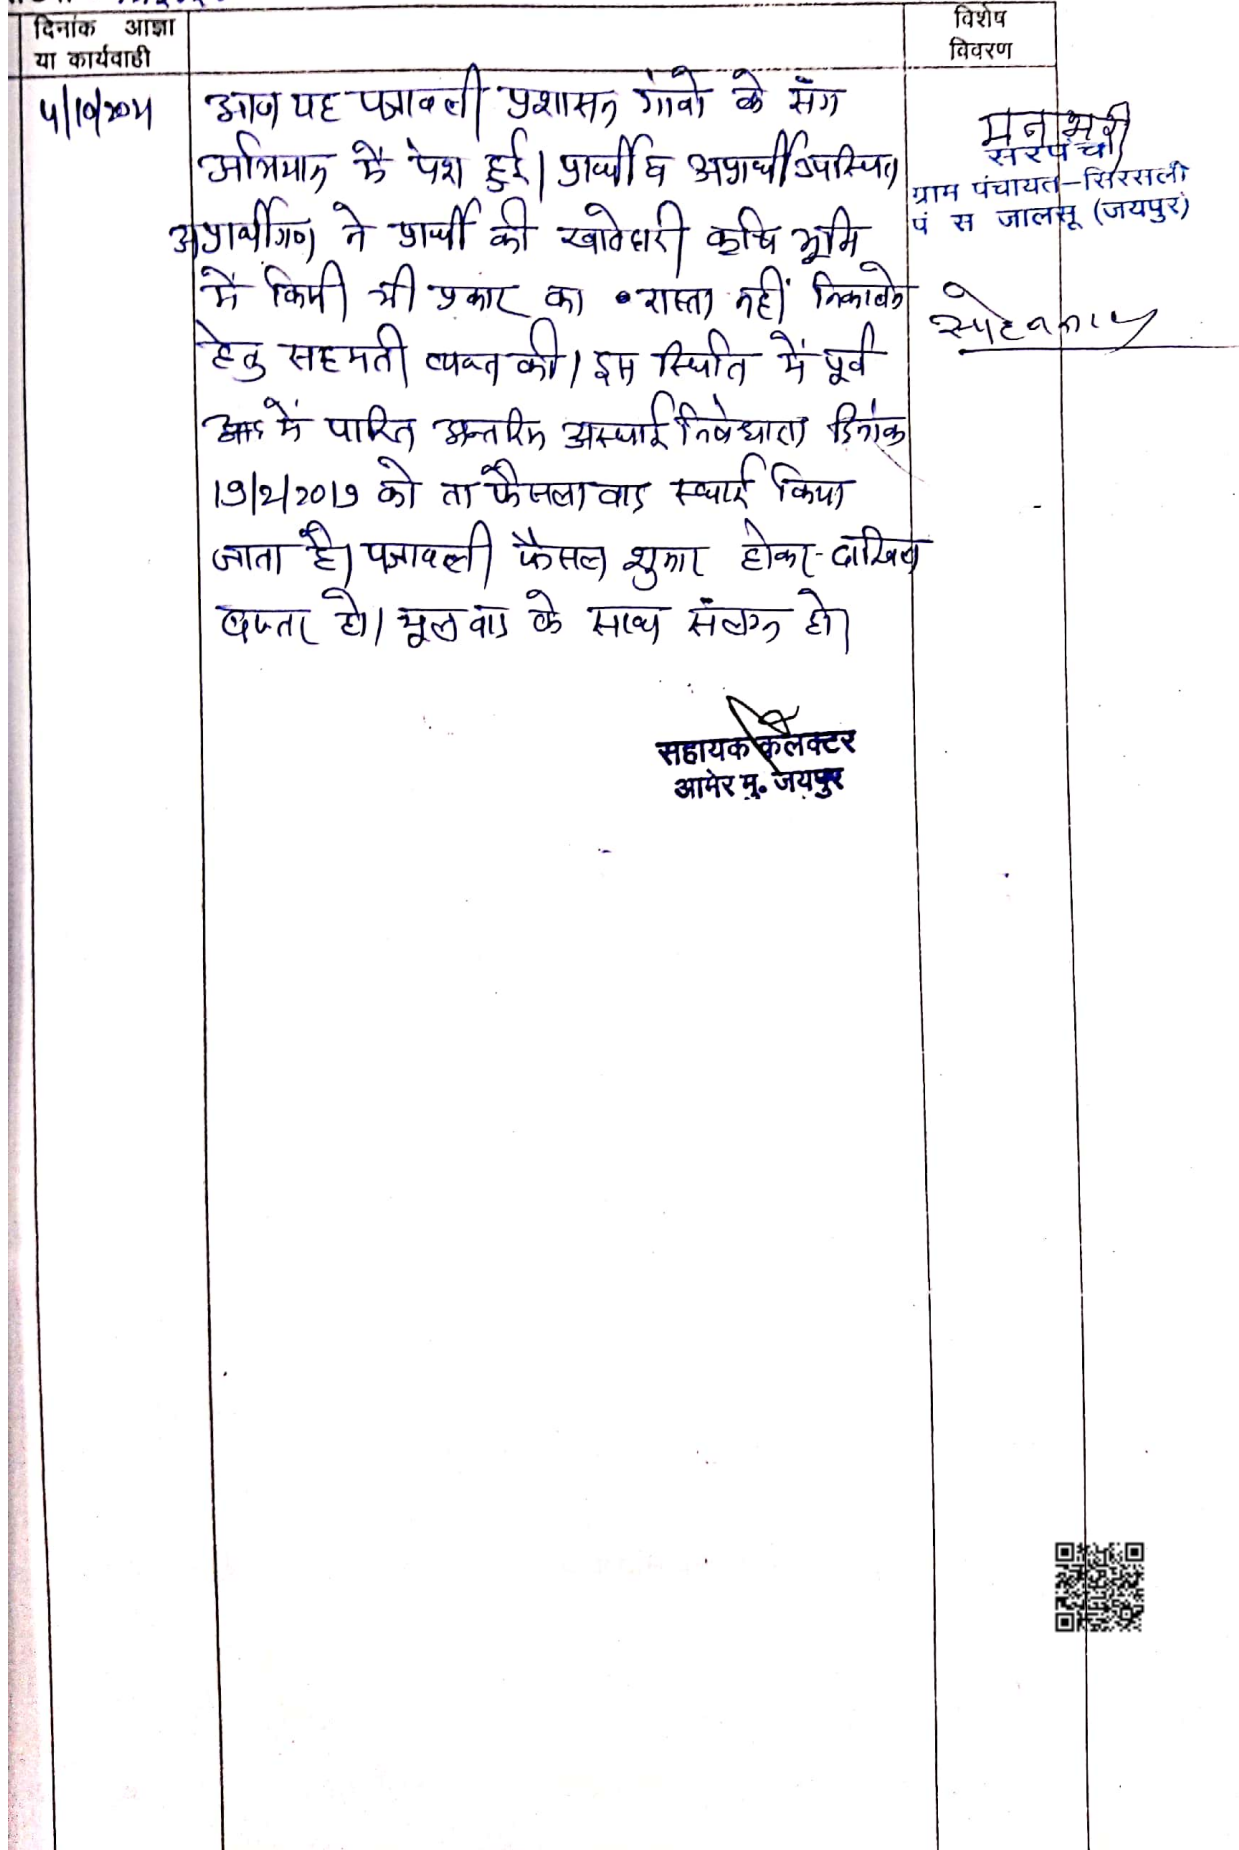 दिनांक आज्ञा
या कार्यवाही
विशेष
विवरण
आज यह पत्रावली प्रशासन गांवो के संग
अभियान में पेश हुई। प्रार्थी व अप्रार्थी उपस्थित
अप्रार्थीगण ने प्रार्थी की खातेदारी कृषि भूमि
में किसी भी प्रकार का रास्ता नहीं निकालने
हेतु सहमती व्यक्त की। इस स्थिति में पूर्व
में पारित अन्तरिम अस्थाई निषेधाज्ञा दिनांक
19/2/2019 को ता फैसला वाद स्थाई किया
जाता है। पत्रावली फैसल शुमार होकर दाखिल
दफ्तर हो। मूल वाद के साथ संलग्न हो।
सहायक कलक्टर
आमेर मु. जयपुर
मनभरी
सरपंच
ग्राम पंचायत-सिरसली
पं स जालसू (जयपुर)